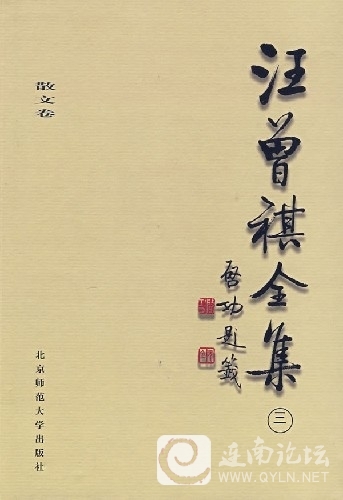 汪曾祺全集
三
启功题签
散文卷
北京师范大学出版社
连南论坛
WWW.QYLN.NET